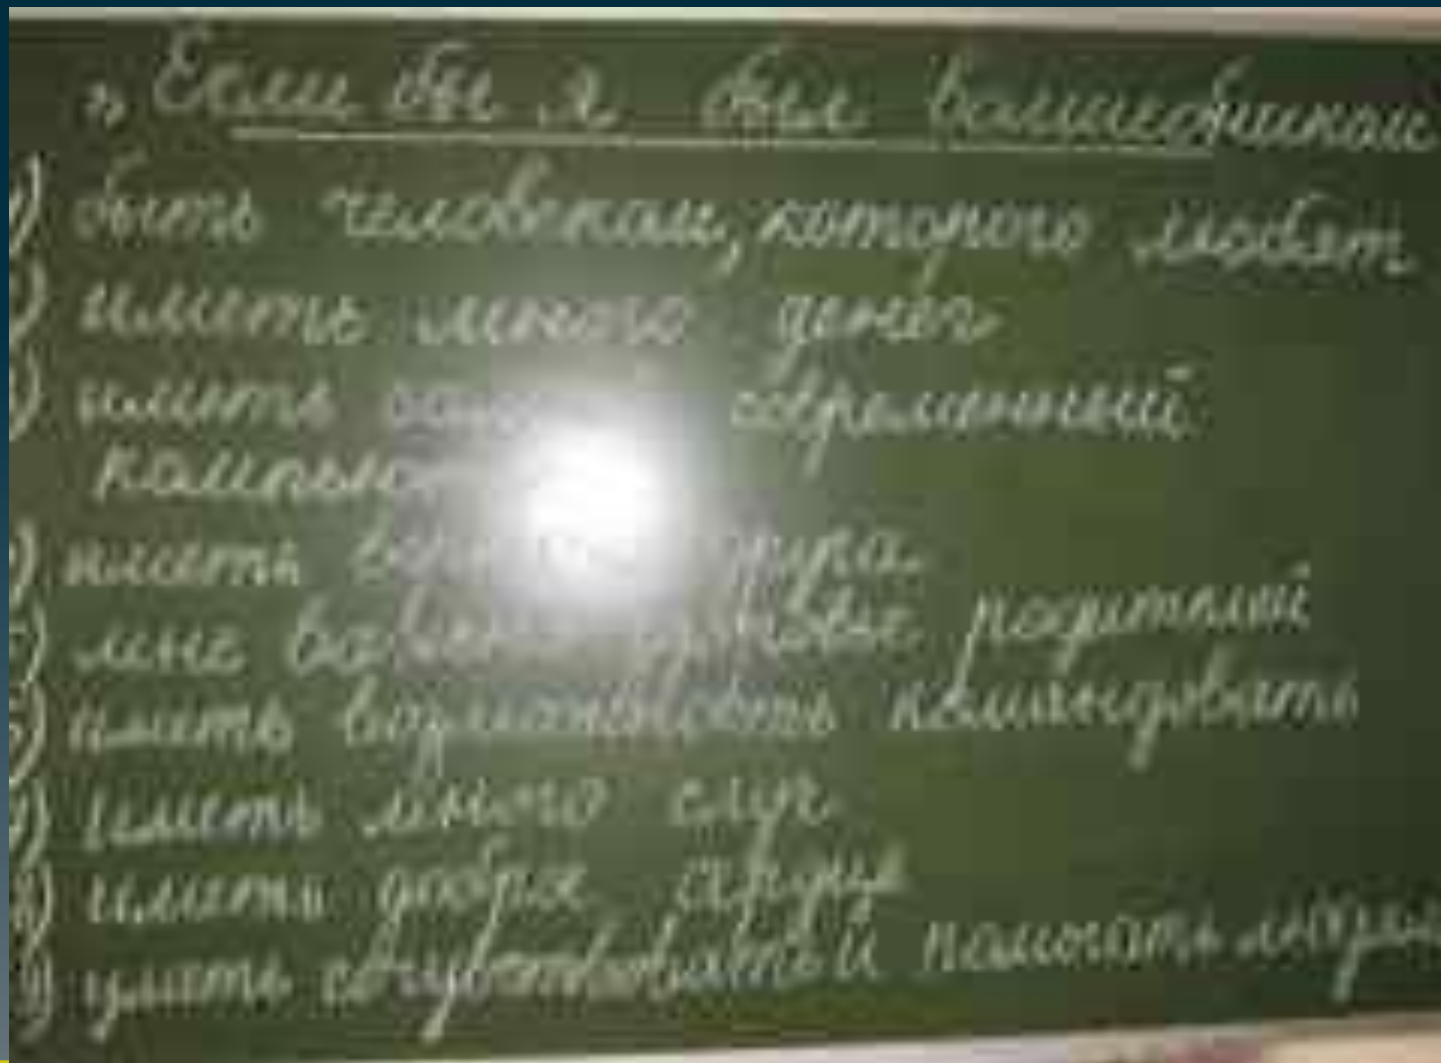 „ Если бы я был волшебником
быть человеком, которого любят
2) иметь много денег
3) иметь самый современный
компьют
4) иметь друга.
5) мне родителей
6) иметь возможность командовать
7) иметь много слуг
8) иметь доброе сердце
9) уметь сочувствовать и помогать людям